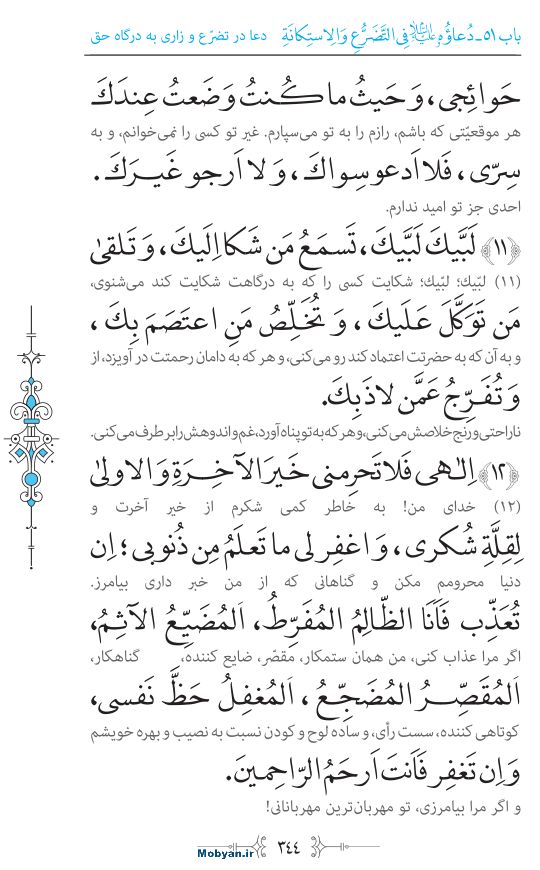 باب ٥١-دُعاؤُهُ عليه‌السلام فِى التَّضَرُّعِ وَالِاستِكانَةِ دعا در تضرّع و زاری به درگاه حق
حَوائِجى، وَحَيثُ ما كُنتُ وَضَعتُ عِندَكَ
هر موقعیّتی که باشم، رازم را به تو می‌سپارم. غیر تو کسی را نمی‌خوانم، و به
سِرّى، فَلا اَدعو سِواكَ، وَلا اَرجو غَيرَكَ.
احدی جز تو امید ندارم.
﴿١١﴾ لَبَّيكَ لَبَّيكَ، تَسمَعُ مَن شَكا اِلَيكَ، وَتَلقىٰ
(١١) لبّیك؛ لبّیك؛ شکایت کسی را که به درگاهت شکایت کند می‌شنوی،
مَن تَوَكَّلَ عَلَيكَ، وَتُخَلِّصُ مَنِ اعتَصَمَ بِكَ،
و به آن که به حضرتت اعتماد کند رو می‌کنی، و هر که به دامان رحمتت درآویزد، از
وَتُفَرِّجُ عَمَّن لاذَ بِكَ.
ناراحتی و رنج خلاصش می‌کنی، و هر که به تو پناه آورد، غم و اندوهش را برطرف می‌کنی.
﴿١٢﴾ اِلـٰهى فَلا تَحرِمنى خَيرَ الآخِرَةِ وَالاولىٰ
(١٢) خدای من! به خاطر کمی شکرم از خیر آخرت و
لِقِلَّةِ شُكرى، وَاغفِر لى ما تَعلَمُ مِن ذُنوبى؛ اِن
دنیا محرومم مکن و گناهانی که از من خبر داری بیامرز.
تُعَذِّب فَاَنَا الظّالِمُ المُفَرِّطُ، اَلمُضَيِّعُ الآثِمُ،
اگر مرا عذاب کنی، من همان ستمکار، مقصّر، ضایع کننده، گناهکار،
اَلمُقَصِّرُ المُضَجِّعُ، اَلمُغفِلُ حَظَّ نَفسى،
کوتاهی کننده، سست رأی، و ساده لوح و کودن نسبت به نصیب و بهره خویشم
وَاِن تَغفِر فَاَنتَ اَرحَمُ الرّاحِمينَ.
و اگر مرا بیامرزی، تو مهربان‌ترین مهربانانی!
٣٤٤
Mobyan.ir